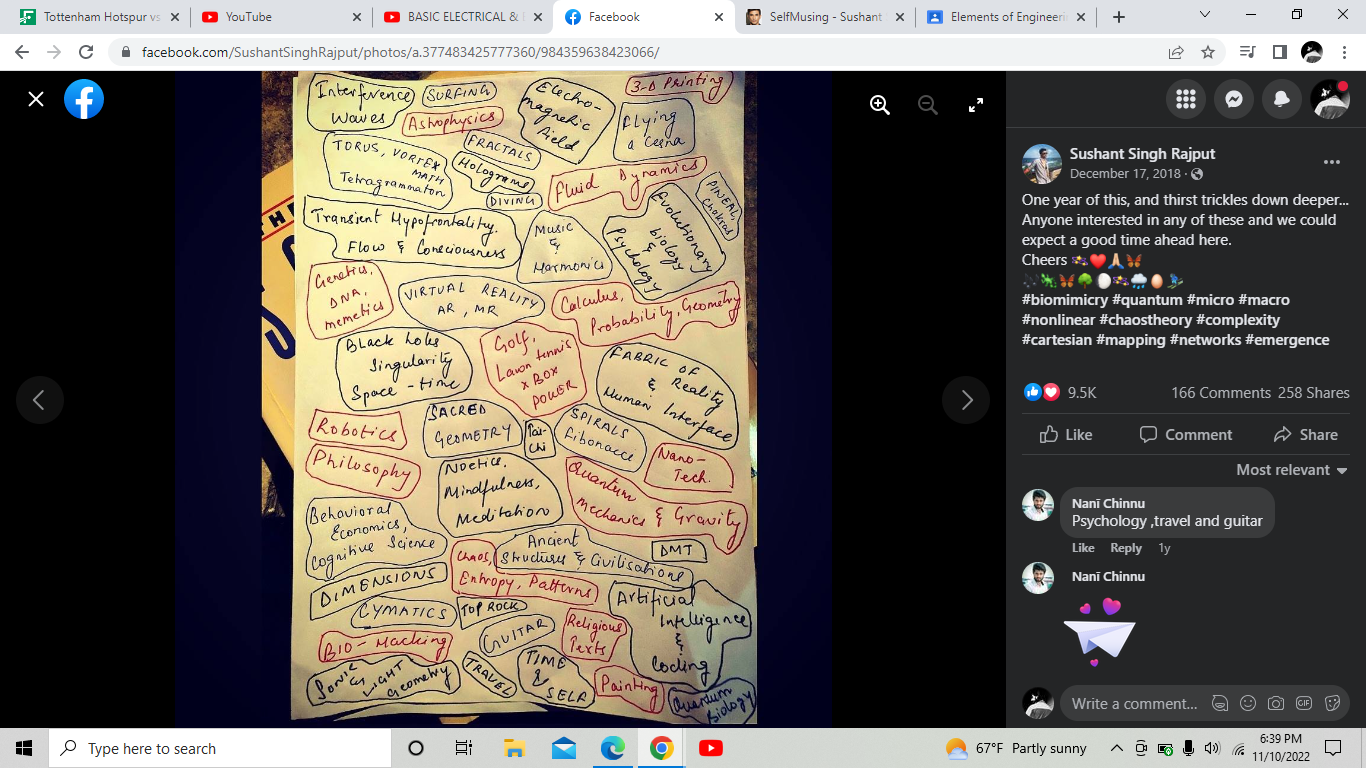 Tottenham Hotspur vs
YouTube
BASIC ELECTRICAL &
Facebook
SelfMusing - Sushant
Elements of Engineeri
facebook.com/SushantSinghRajput/photos/a.377483425777360/984359638423066/
Interference
Waves
SURFING
Astrophysics
Electro-
magnetic
field
3-D Printing
Flying
a Cesna
TORUS, VORTEX
MATH
Tetragrammaton
FRACTALS
Holograms
DIVING
Fluid Dynamics
PINEAL,
Chakras
Transient Hypofrontality.
Flow & Consciousness
MUSIC
&
Harmonics
Evolutionary
biology
&
Psychology
Genetics,
DNA,
memetics
VIRTUAL REALITY
AR, MR
Calculus,
Probability, Geometry
Black holes
Singularity
Space-time
Golf,
Lawn tennis
XBOX
POWER
FABRIC OF
& Reality
Human Interface
Robotics
SACRED
GEOMETRY
Tai-
Chi
SPIRALS
Fibonacci
Philosophy
Noetics,
Mindfulness,
Meditation
Quantum
Mechanics & Gravity
Nano-
Tech.
Behavioral
Economics,
Cognitive Science
Ancient
Structures & Civilisations
DMT
Chaos,
Entropy, Patterns
DIMENSIONS
CYMATICS
TOP ROCK
GUITAR
Religious
Texts
Artificial
Intelligence
&
Coding
BIO-Hacking
SONIC
LIGHT
Geometry
TRAVEL
TIME
&
SELF
Painting
Quantum
Biology
Sushant Singh Rajput
December 17, 2018 ·
One year of this, and thirst trickles down deeper...
Anyone interested in any of these and we could
expect a good time ahead here.
Cheers 💫❤️🙏🏻🦋
#biomimicry #quantum #micro #macro
#nonlinear #chaostheory #complexity
#cartesian #mapping #networks #emergence
9.5K
166 Comments 258 Shares
Like
Comment
Share
Most relevant
Nanī Chinnu
Psychology ,travel and guitar
Like Reply 1y
Nanī Chinnu
Write a comment...
GIF
Type here to search
67°F Partly sunny
6:39 PM
11/10/2022